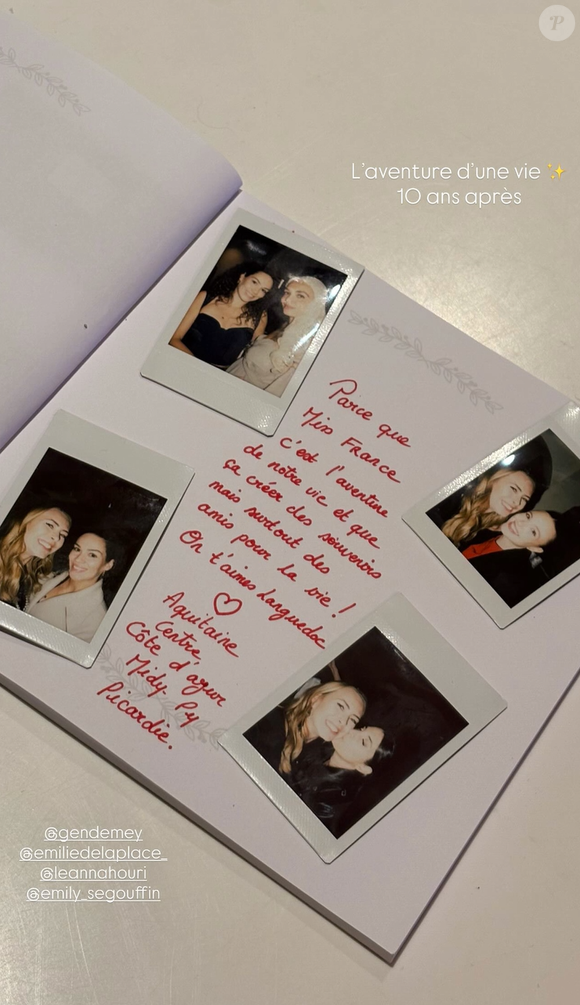 P
L'aventure d'une vie ✨
10 ans après
Parce que
Miss France
c'est l'aventure
de notre vie et que
ça créer des souvenirs
mais surtout des
amis pour la vie !
On t'aimes Languedoc
♡
Aquitaine
Centre,
Côte d'azur
Midy Py
Picardie.
@gendemey
@emiliedelaplace_
@leannahouri
@emily_segouffin